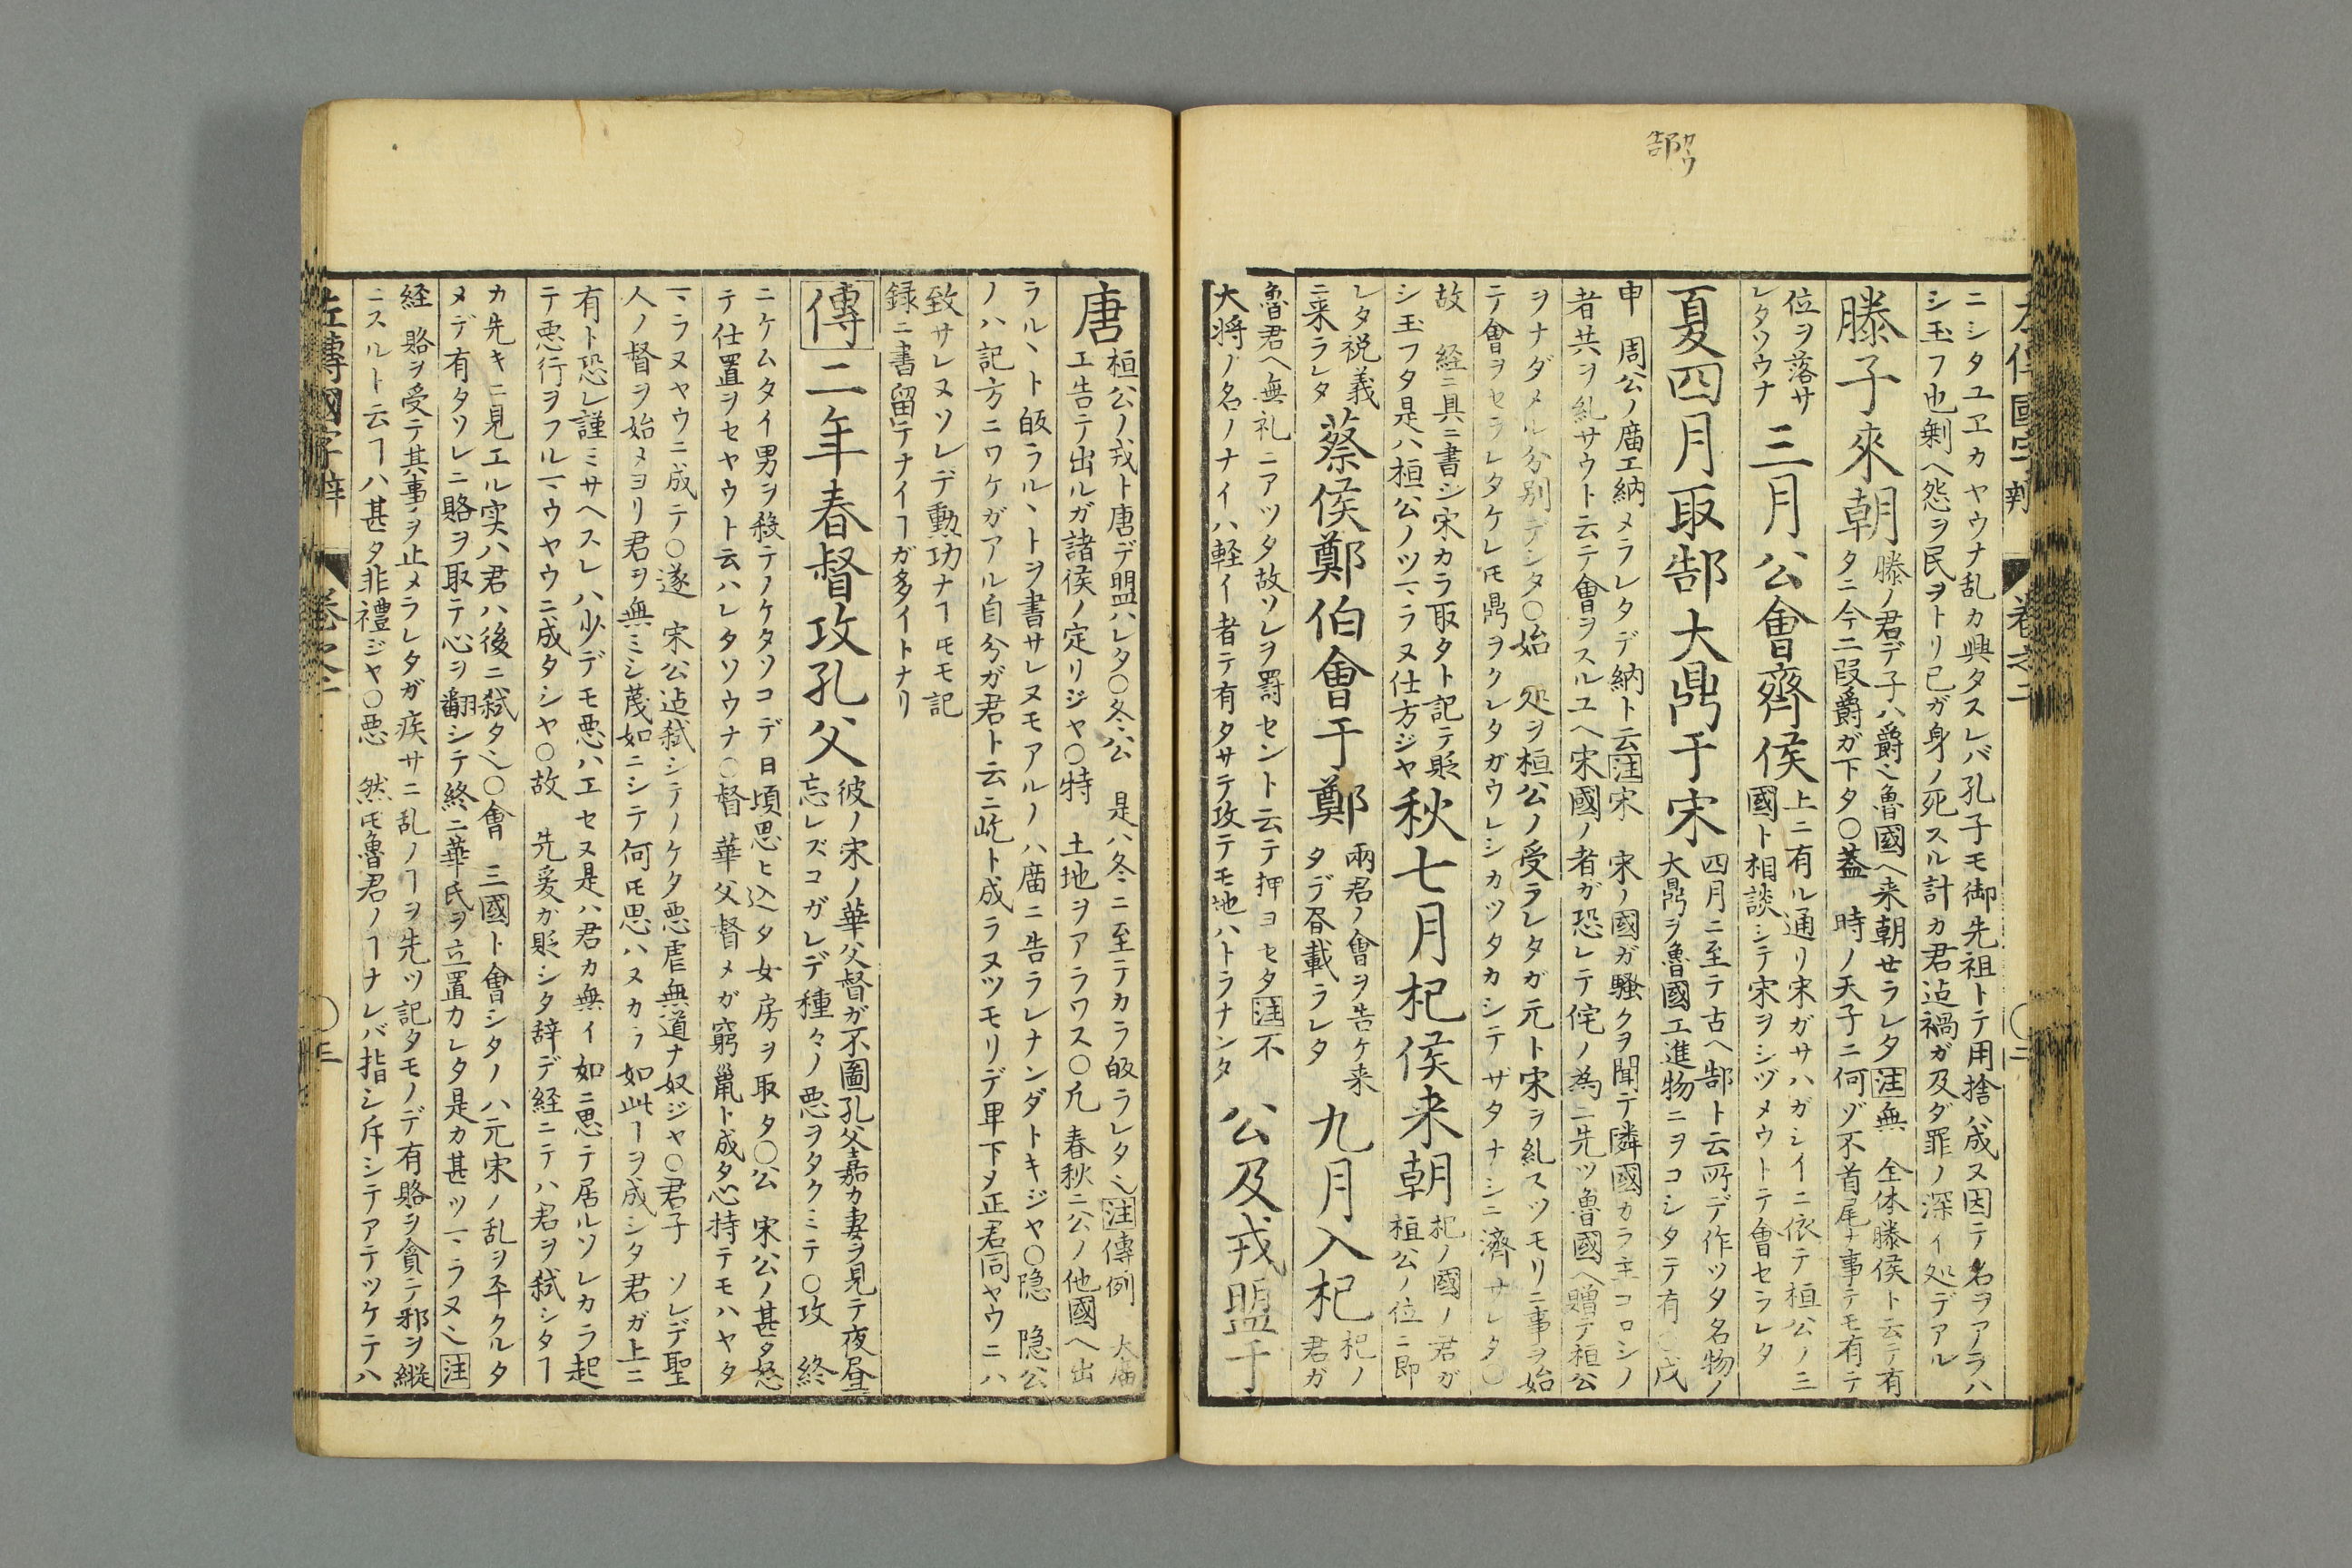 郜
カウ
左傳國字辯 巻之二 〇二
ニシタユヱカヤウナ乱カ興タスレバ孔子モ御先祖トテ用捨ハ成ヌ因テ名ヲアラハ
シ玉フ也剰ヘ怨ヲ民ヲトリ已ガ身ノ死スル計カ君迠禍ガ及ダ罪ノ深イ処デアル
滕子來朝
滕ノ君デ子ハ爵〻魯國ヘ来朝せラレタ注無 全体滕侯ト云テ有
タニ今ニ叚爵ガ下タ〇蓋 時ノ天子ニ何ゾ不首尾ナ事テモ有テ
位ヲ落サ
レタソウナ
三月公會齊侯
上ニ有ル通リ宋ガサハガシイニ依テ桓公ノ三
國ト相談シテ宋ヲシヅメウトテ會セラレタ
夏四月取郜大鼎于宋
四月ニ至テ古ヘ郜ト云所デ作ツタ名物ノ
大鼎ヲ魯國エ進物ニヲコシタテ有〇戊
申 周公ノ庿エ納メラレタデ納ト云注宋 宋ノ國ガ騒クヲ聞テ隣國カラ主コロシノ
者共ヲ糺サウト云テ會ヲスルユヘ宋國ノ者ガ恐レテ侘ノ為ニ先ツ魯國ヘ贈テ桓公
ヲナダメル分別デシタ〇始 処ヲ桓公ノ受ラレタガ元ト宋ヲ糺スツモリニ事ヲ始
テ會ヲセラレタケレ𪜈鼎ヲクレタガウレシカツタカシテザタナシニ濟ナサレタ〇
故 経ニ具ニ書シ宋カラ取タト記テ貶
シ玉フタ是ハ桓公ノツマラヌ仕方ジヤ
秋七月杞侯来朝
杞ノ國ノ君ガ
桓公ノ位ニ即
レタ祝義
ニ来ラレタ
蔡侯鄭伯會于鄭
兩君ノ會ヲ告ケ来
タデ昏載ラレタ
九月入杞
杞ノ
君ガ
魯君ヘ無礼ニアツタ故ソレヲ罸セントテ云テ押ヨセタ注不
大将ノ名ノナイハ軽イ者テ有タサテ攻テモ地ハトラナンタ
公及戎盟于
唐
桓公ノ戎ト唐デ盟ハレタ〇冬公 是ハ冬ニ至テカラ皈ラレタ〻注傳例 大庿
エ告テ出ルガ諸侯ノ定リジヤ〇特 土地ヲアラワス〇凢 春秋ニ公ノ他國ヘ出
ラルヽト皈ラルヽトヲ書サレヌモアルノハ庿ニ告ラレナンダトキジヤ〇隐 隐公
ノハ記方ニワケガアル自分ガ君ト云ニ屹ト成ラヌツモリデ卑下メ正君同ヤウニハ
致サレヌソレデ勲功ナヿ𪜈モ記
録ニ書留テナイヿガ多イトナリ
傳二年春督攻孔父
彼ノ宋ノ華父督ガ不圖孔父嘉カ妻ヲ見テ夜昼
忘レズコガレデ種々ノ悪ヲタクミテ〇攻 終
ニケムタイ男ヲ殺テノケタソコデ日頃思ヒ込タ女房ヲ取タ〇公 宋公ノ甚タ怒
テ仕置ヲセヤウト云ハレタソウナ〇督 華父督メガ窮鼠ト成タ心持テモハヤタ
マラヌヤウニ成テ〇遂 宋公迠弑シテノケタ悪虐無道ナ奴ジヤ〇君子 ソレデ聖
人ノ督ヲ始メヨリ君ヲ無ミシ蔑如ニシテ何𪜈思ハヌカラ如此ヿヲ成シタ君ガ上ニ
有ト恐レ謹ミサヘスレハ少デモ悪ハエセヌ是ハ君カ無イ如ニ思テ居ルソレカラ起
テ悪行ヲフルマウヤウニ成タシヤ〇故 先爰カ貶シタ辞デ経ニテハ君ヲ弑シタヿ
カ先キニ見エル実ハ君ハ後ニ弑タ〻〇會 三國ト會シタノハ元宋ノ乱ヲ平クルタ
メデ有タソレニ賂ヲ取テ心ヲ翻シテ終ニ華氏ヲ立置カレタ是カ甚ツマラヌ〻注
経 賂ヲ受テ其事ヲ止メラレタガ疾サニ乱ノヿヲ先ツ記タモノデ有賂ヲ貪テ邪ヲ縦
ニスルト云ヿハ甚タ非禮ジヤ〇悪 然𪜈魯君ノヿナレバ指シ斥シテアテツケテハ
左傳國字辯 巻之二 〇三